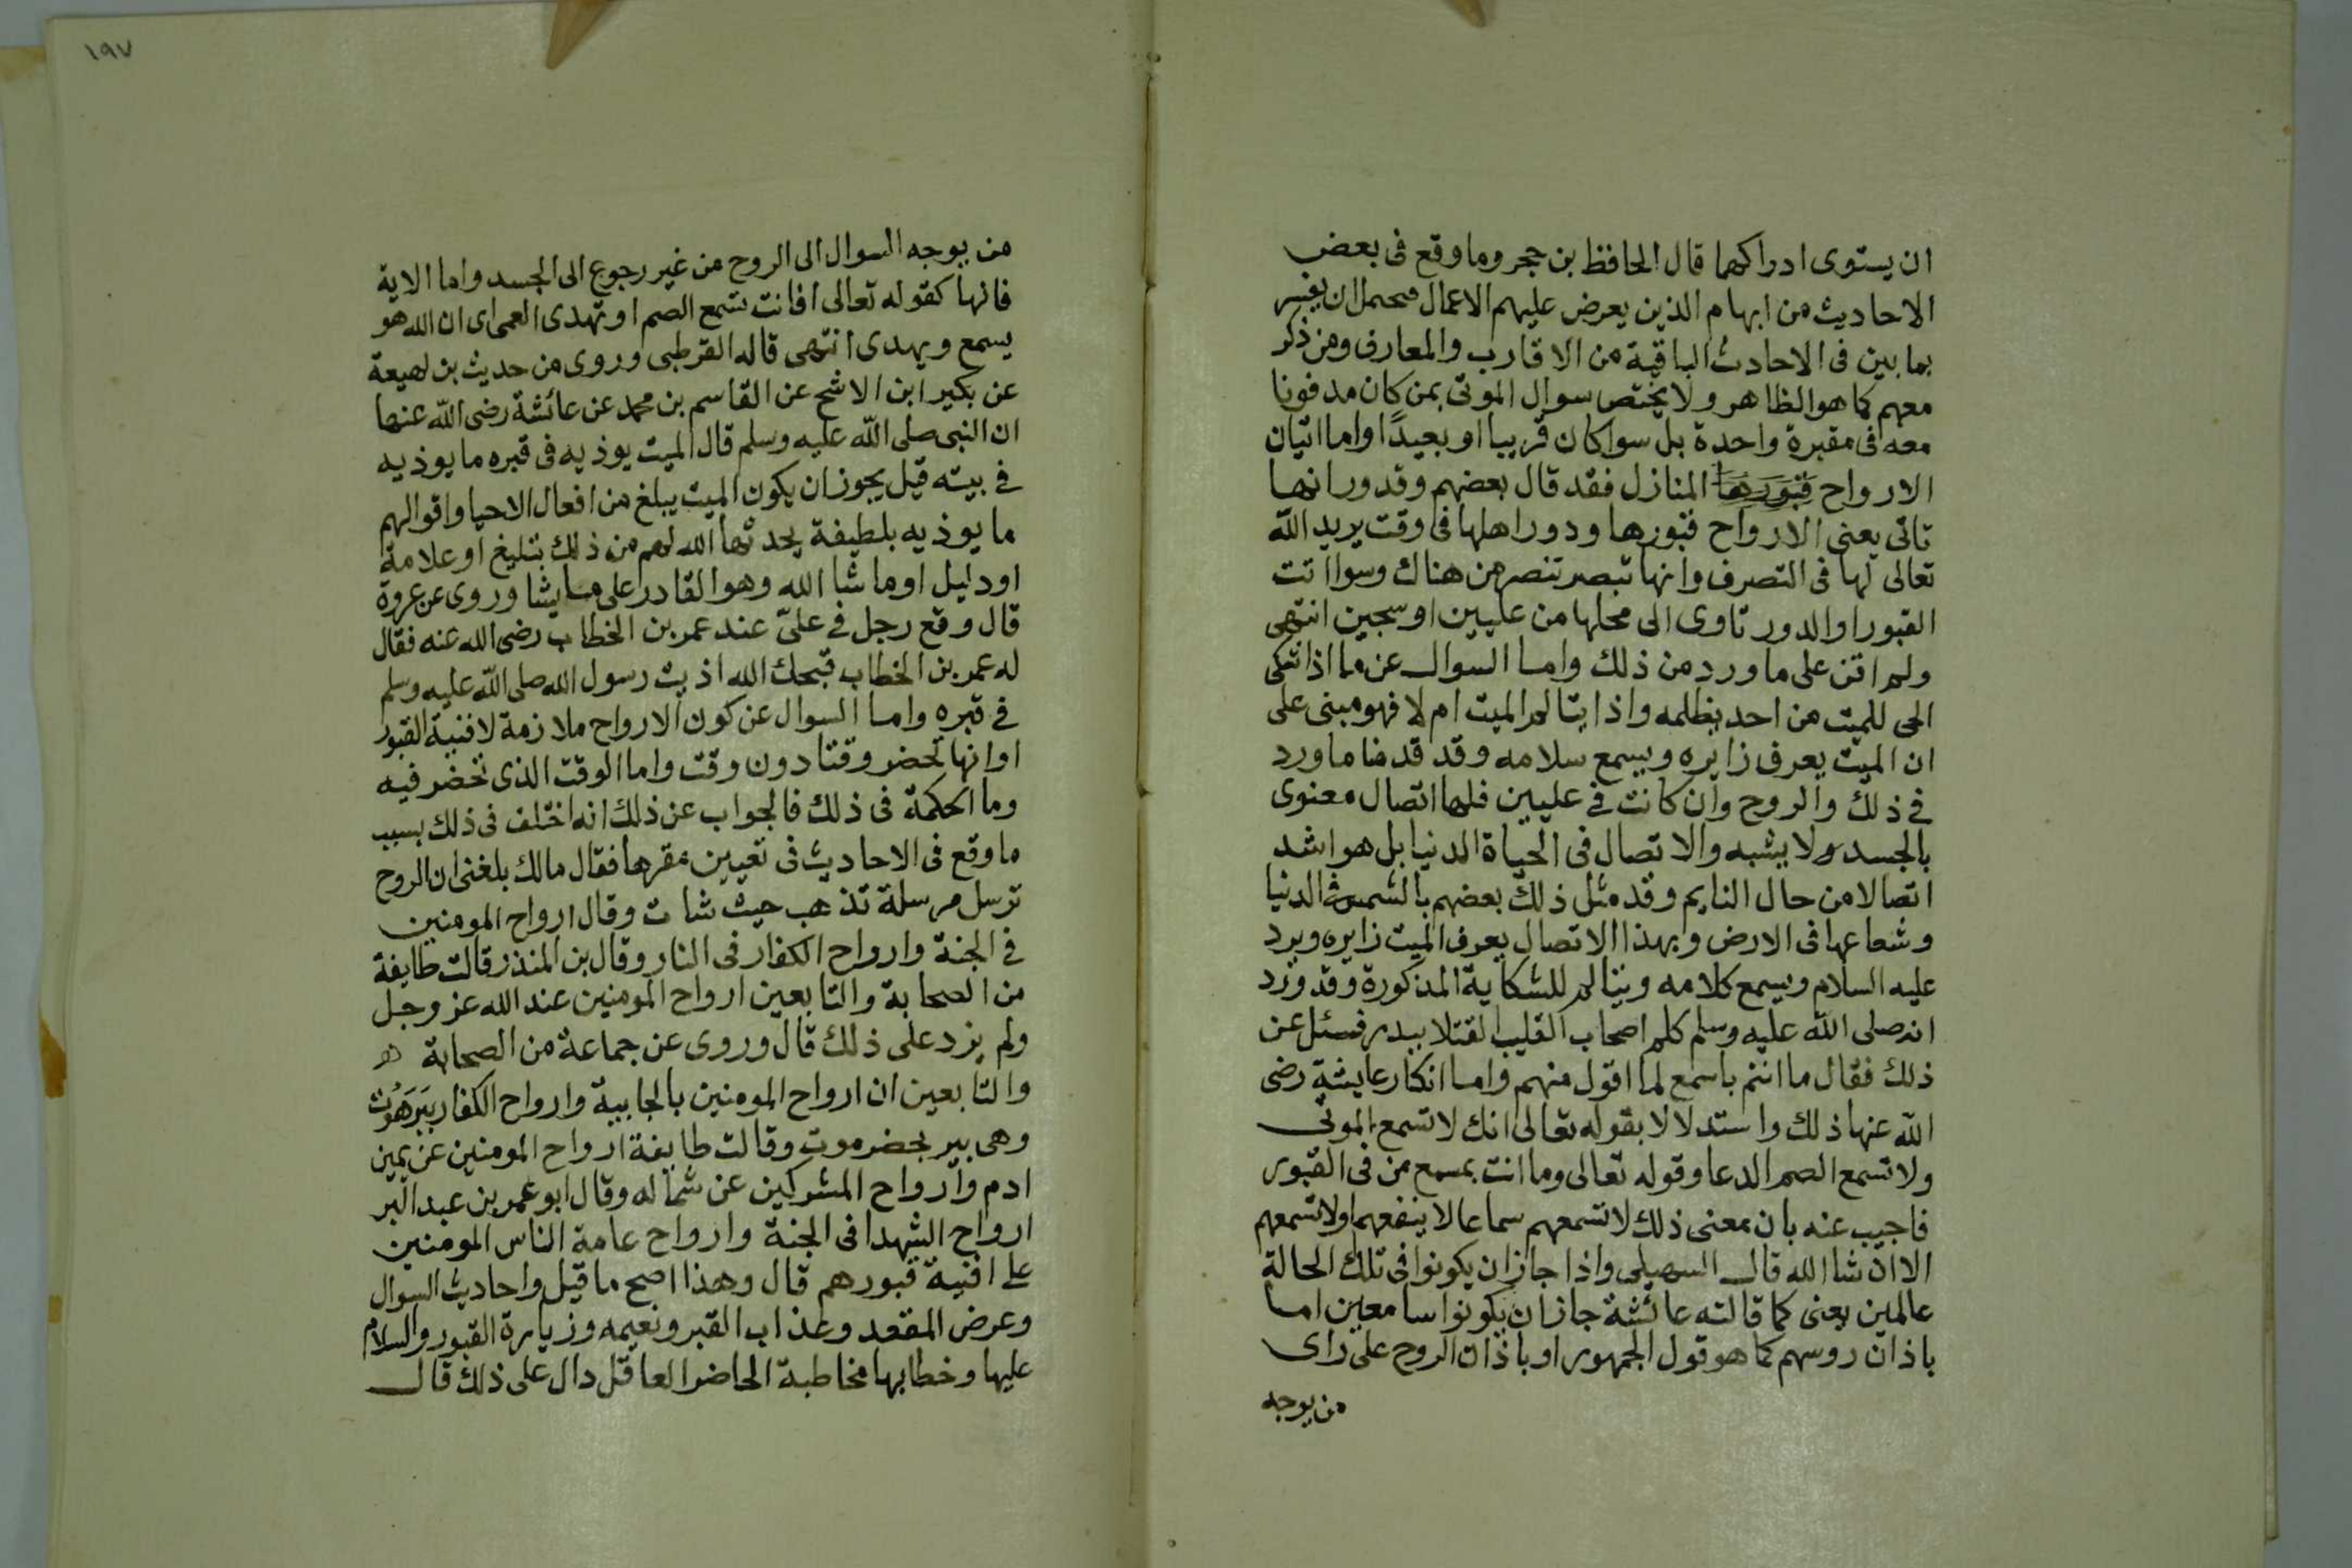 ان يستوى ادراكهما قال الحافظ بن حجر وما وقع فى بعض
الاحاديث من ابهام الذين يعرض عليهم الاعمال محتمل ان يفسر
بما بين فى الاحاديث الباقية من الاقارب والمعارف ومن ذكر
معهم كما هو الظاهر ولا يختص سوال الموتى بمن كان مدفونا
معه فى مقبرة واحدة بل سوا كان قريبا او بعيدًا واما اتيان
الارواح قبورها المنازل فقد قال بعضهم وقد ورانها
تاتى يعنى الارواح قبورها ودور اهلها فى وقت يريد الله
تعالى لها فى التصرف وانها تبصر تنصر من هناك وسوا اتت
القبور او الدور تاوى الى محلها من عليين او سجين انتهى
ولم اقف على ما ورد من ذلك واما السوال عن ما اذا شكى
الحى للميت من احد يظلمه واذا يتالم الميت ام لا فهو مبنى على
ان الميت يعرف زايره ويسمع سلامه وقد قدمنا ما ورد
فى ذلك والروح وان كانت فى عليين فلها اتصال معنوى
بالجسد ولا يشبه والاتصال فى الحياة الدنيا بل هو اشد
اتصالا من حال النايم وقد مثل ذلك بعضهم بالشمس فى الدنيا
وشعاعها فى الارض وبهذا الاتصال يعرف الميت زايره ويرد
عليه السلام ويسمع كلامه ويتالم للشكاية المذكورة وقد ورد
انه صلى الله عليه وسلم كلم اصحاب القليب القتلا ببدر فسئل عن
ذلك فقال ما انتم باسمع لما اقول منهم واما انكار عايشة رضى
الله عنها ذلك واستدلالا بقوله تعالى انك لا تسمع الموتى
ولا تسمع الصم الدعا وقوله تعالى وما انت بمسمع من فى القبور
فاجيب عنه بان معنى ذلك لا تسمعهم سماعا لا ينفعهم اولا تسمعهم
الا ان شا الله قال السهيلى واذا جاز ان يكونوا فى تلك الحالة
عالمين يعنى كما قالته عائشة جاز ان يكونوا سامعين اما
باذان روسهم كما هو قول الجمهور او باذان الروح على راى
من يوجه
١٩٧
من يوجه السوال الى الروح من غير رجوع الى الجسد واما الاية
فانها كقوله تعالى افانت تسمع الصم او تهدى العمى اى ان الله هو
يسمع ويهدى انتهى قاله القرطبى وروى من حديث بن لهيعة
عن بكير ابن الاشج عن القاسم بن محمد عن عائشة رضى الله عنها
ان النبى صلى الله عليه وسلم قال الميت يوذيه فى قبره ما يوذيه
فى بيته قيل يجوز ان يكون الميت يبلغ من افعال الاحيا واقوالهم
ما يوذيه بلطيفة يحدثها الله لهم من ذلك بتليغ او علامة
او دليل او ما شا الله وهو القادر على ما يشا وروى عن عروة
قال وقع رجل فى علىّ عند عمر بن الخطاب رضى الله عنه فقال
له عمر بن الخطاب قبحك الله اذيت رسول الله صلى الله عليه وسلم
فى قبره واما السوال عن كون الارواح ملازمة لافنية القبور
او انها تحضر وقتا دون وقت واما الوقت الذى تحضر فيه
وما الحكمة فى ذلك فالجواب عن ذلك انه اختلف فى ذلك بسبب
ما وقع فى الاحاديث فى تعيين مقرها فقال مالك بلغنى ان الروح
ترسل مرسلة تذهب حيث شات وقال ارواح المومنين
فى الجنة وارواح الكفار فى النار وقال بن المنذر قالت طايفة
من الصحابة والتابعين ارواح المومنين عند الله عز وجل
ولم يزد على ذلك قال وروى عن جماعة من الصحابة
والتابعين ان ارواح المومنين بالجابية وارواح الكفار ببَرَهُوت
وهى بير بحضرموت وقالت طايفة ارواح المومنين عن يمين
ادم وارواح المشركين عن شماله وقال ابو عمر بن عبد البر
ارواح الشهدا فى الجنة وارواح عامة الناس المومنين
على افنية قبورهم قال وهذا اصح ما قيل واحاديث السوال
وعرض المقعد وعذاب القبر ونعيمه وزيارة القبور والسلام
عليها وخطابها مخاطبة الحاضر العاقل دال على ذلك قال